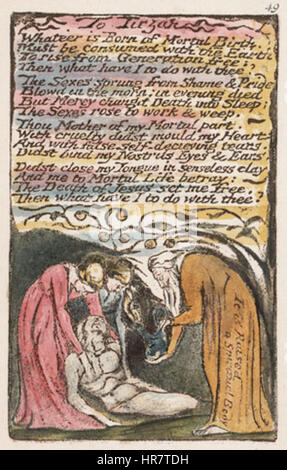 49
To Tirzah
Whate'er is Born of Mortal Birth,
Must be consumed with the Earth
To rise from Generation free;
Then what have I to do with thee?
The Sexes sprung from Shame & Pride
Blow'd in the morn: in evening died
But Mercy changd Death into Sleep;
The Sexes rose to work & weep.
Thou Mother of my Mortal part.
With cruelty didst mould my Heart.
And with false self-decieving tears,
Didst bind my Nostrils Eyes & Ears
Didst close my Tongue in senseless clay
And me to Mortal Life betray:
The Death of Jesus set me free,
Then what have I to do with thee?
It is Raised
a Spiritual Body
alamy
www.alamy.com
HR7TDH